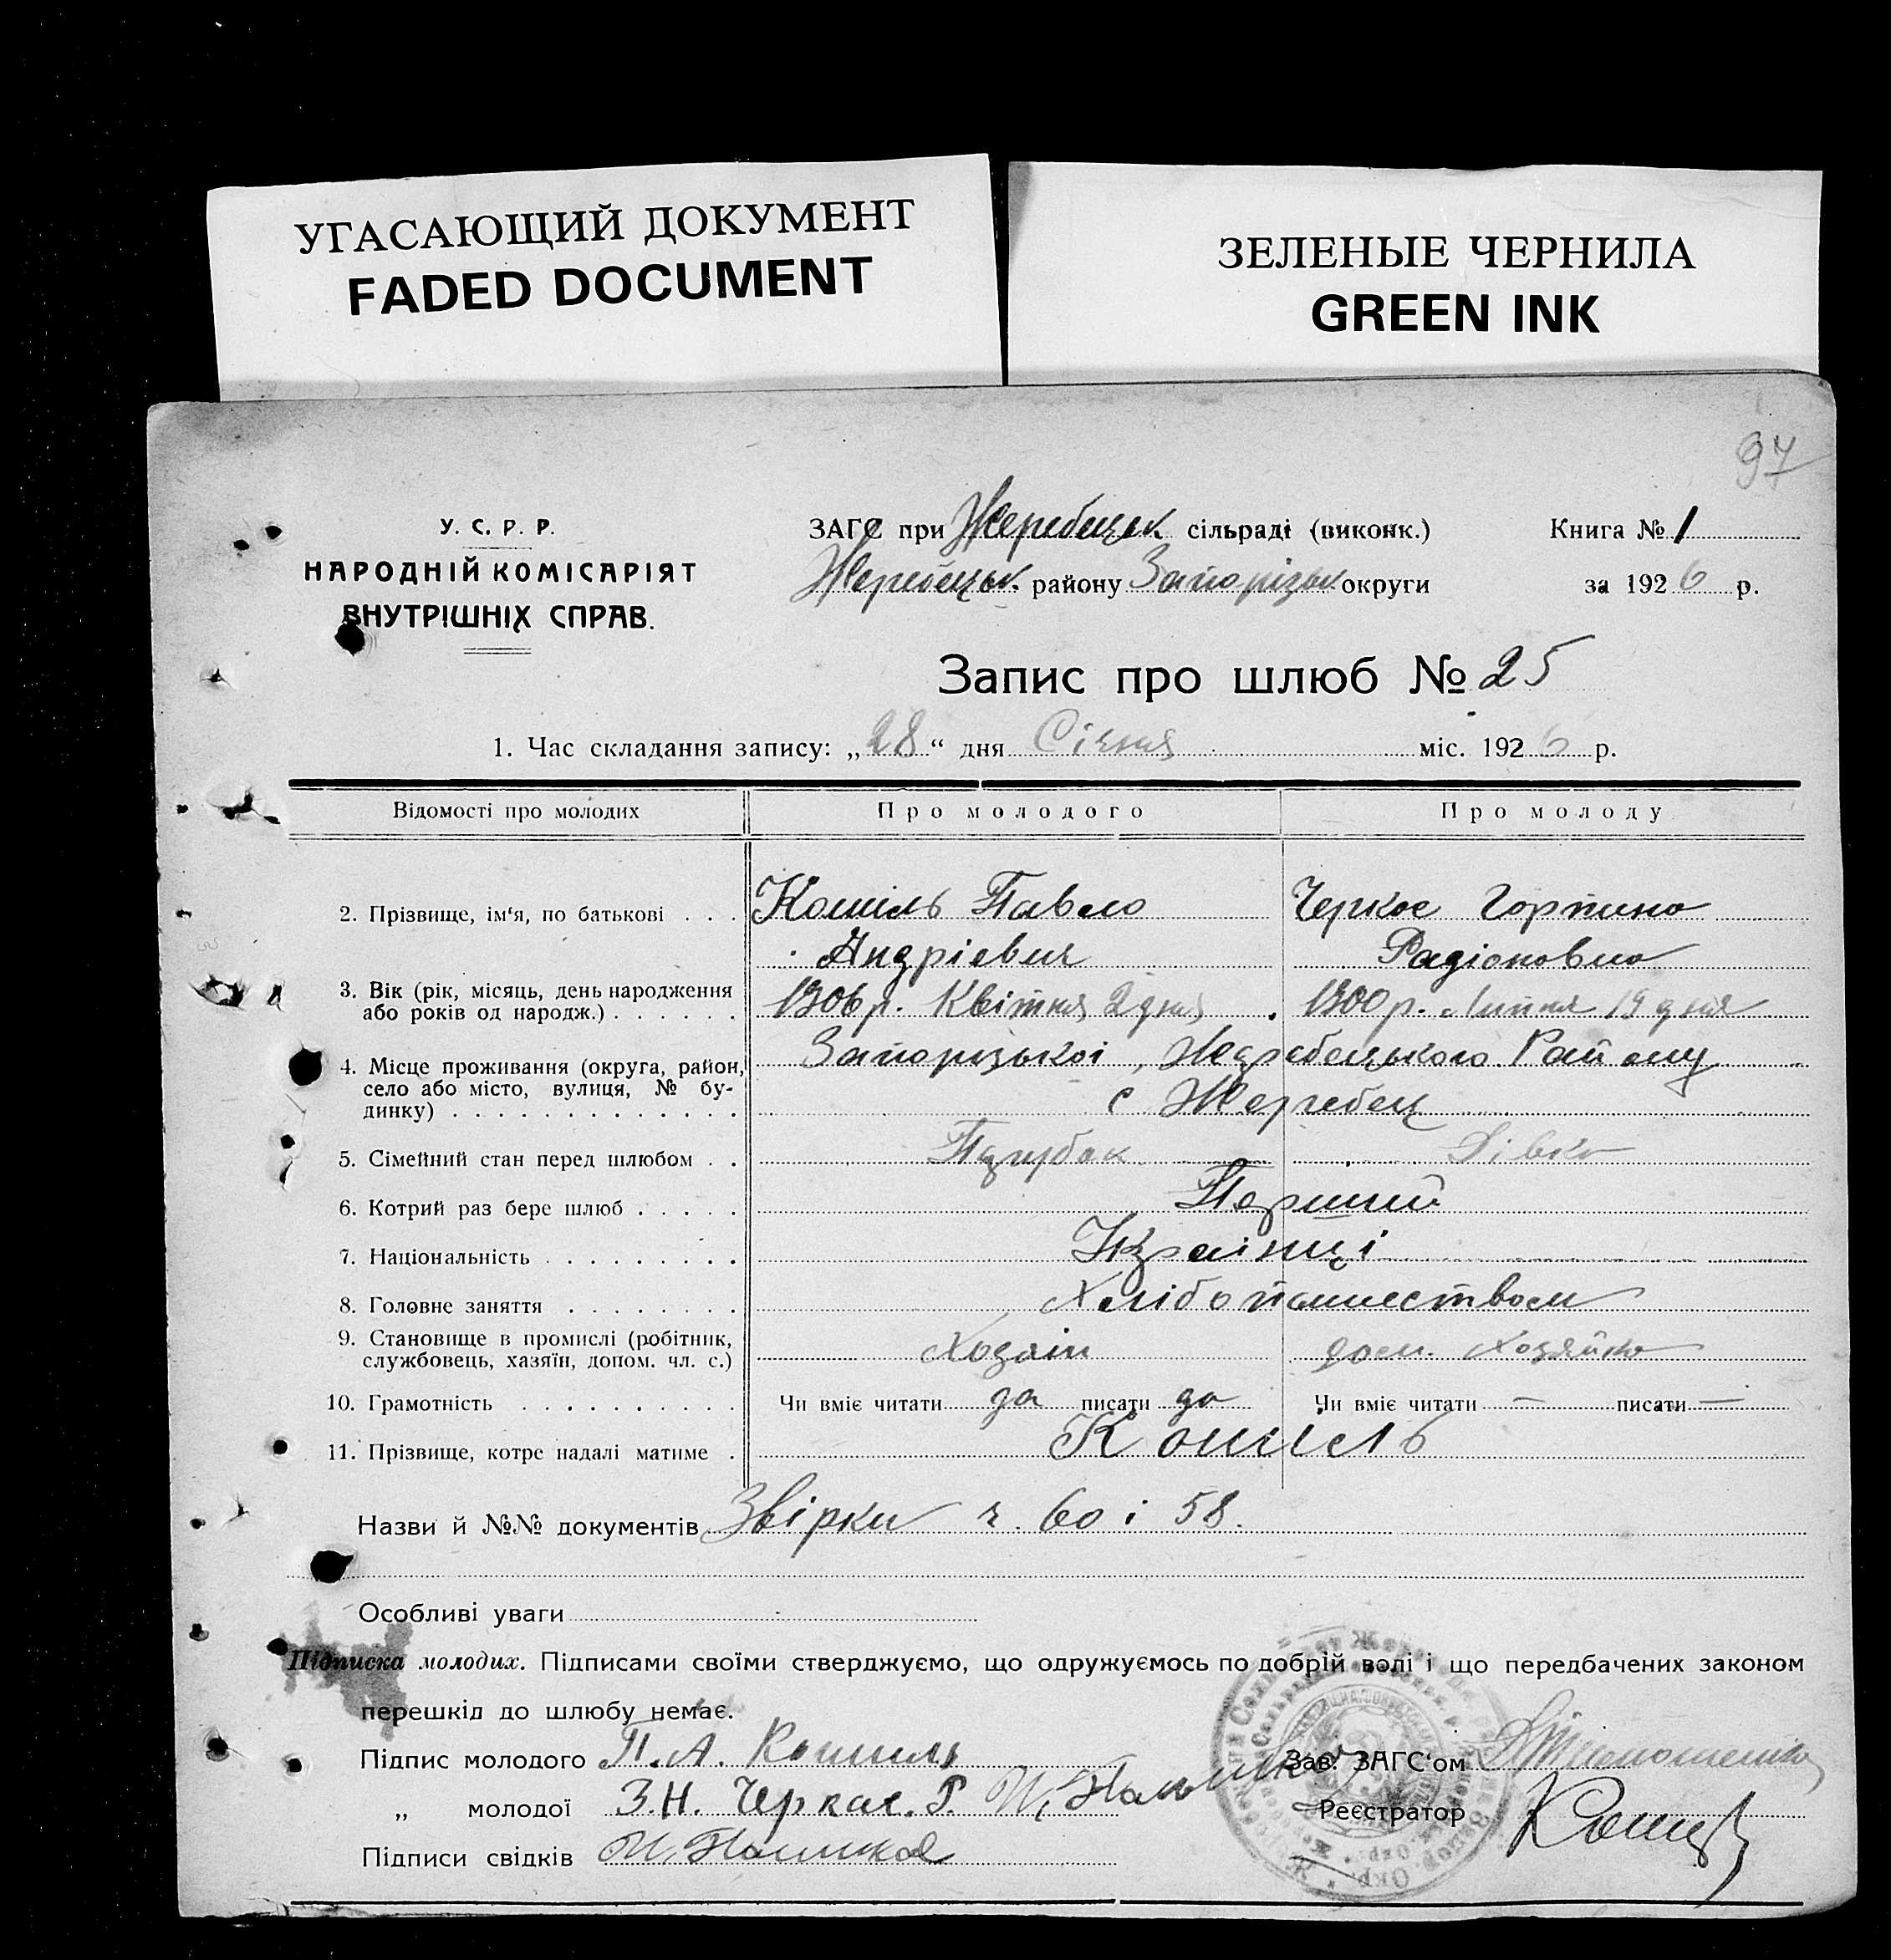 УГАСАЮЩИЙ ДОКУМЕНТ
FADED DOCUMENT
ЗЕЛЕНЫЕ ЧЕРНИЛА
GREEN INK
97
У. С. Р. Р.
НАРОДНІЙ КОМІСАРІЯТ
ВНУТРІШНІХ СПРАВ.
ЗАГС при Жеребецьк сільраді (виконк.) Книга № 1
Жеребецьк. району Запорізьк округи за 1926 р.
Запис про шлюб № 25
1. Час складання запису: „28“ дня Січня міс. 1926 р.
Відомості про молодих Про молодого Про молоду
2. Прізвище, ім‘я, по батькові . . . Кошіль Павло Черкас Горпина
Андрієвич Радіоновна
3. Вік (рік, місяць, день народження 1906 р. Квітня 2 дня 1900 р. Липня 19 дня
або років од народж.) . . . . . .
4. Місце проживання (округа, район, Запорізької, Жеребецького Району
село або місто, вулиця, № бу-
динку) . . . . . . . . . . . . . с Жеребец
5. Сімейний стан перед шлюбом . . Парубок Дівка
6. Котрий раз бере шлюб . . . . . Перший
7. Національність . . . . . . . . . Українці
8. Головне заняття . . . . . . . . Хлібопашеством
9. Становище в промислі (робітник, Хозяїн дом. хозяйка
службовець, хазяїн, допом. чл. с.)
10. Грамотність . . . . . . . . . . Чи вміє читати да писати да Чи вміє читати — писати —
11. Прізвище, котре надалі матиме . Кошіль
Назви й №№ документів Звірки ч. 60 і 58.
Особливі уваги
Підписка молодих. Підписами своїми стверджуємо, що одружуємось по добрій волі і що передбачених законом
перешкід до шлюбу немає.
Підпис молодого П. А. Кошиль Зав. ЗАГС‘ом
„ молодої З.Н. Черкас. Р. Реєстратор
Підписи свідків